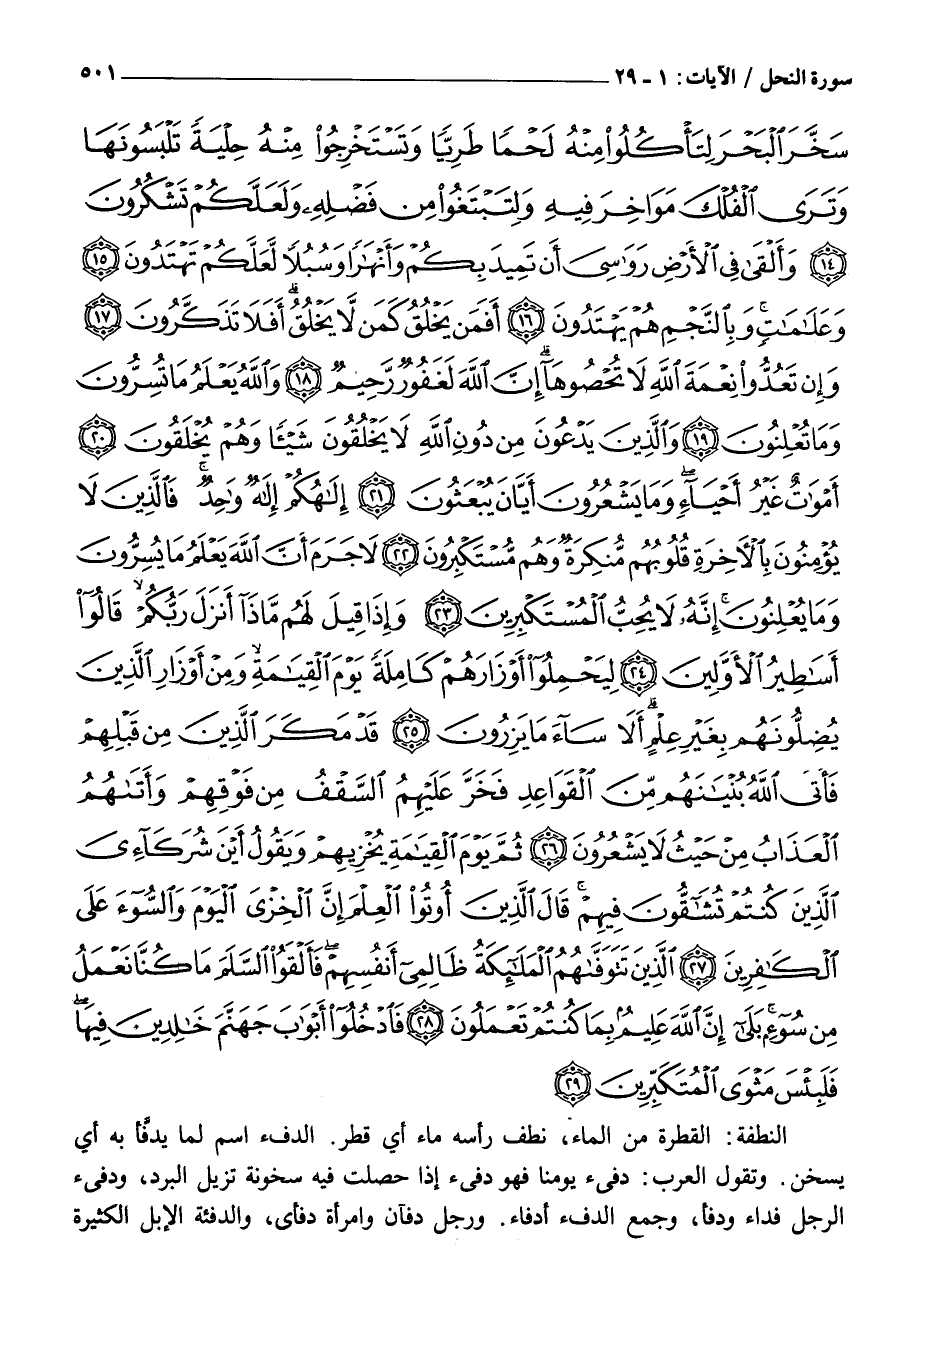 سورة النحل / الآيات: ١ - ٢٩ ــــــــــ ٥٠١
سَخَّرَ ٱلْبَحْرَ لِتَأْكُلُوا۟ مِنْهُ لَحْمًا طَرِيًّا وَتَسْتَخْرِجُوا۟ مِنْهُ حِلْيَةً تَلْبَسُونَهَا
وَتَرَى ٱلْفُلْكَ مَوَاخِرَ فِيهِ وَلِتَبْتَغُوا۟ مِن فَضْلِهِۦ وَلَعَلَّكُمْ تَشْكُرُونَ
﴿١٤﴾ وَأَلْقَىٰ فِى ٱلْأَرْضِ رَوَٰسِىَ أَن تَمِيدَ بِكُمْ وَأَنْهَٰرًا وَسُبُلًا لَّعَلَّكُمْ تَهْتَدُونَ ﴿١٥﴾
وَعَلَٰمَٰتٍ ۚ وَبِٱلنَّجْمِ هُمْ يَهْتَدُونَ ﴿١٦﴾ أَفَمَن يَخْلُقُ كَمَن لَّا يَخْلُقُ ۗ أَفَلَا تَذَكَّرُونَ ﴿١٧﴾
وَإِن تَعُدُّوا۟ نِعْمَةَ ٱللَّهِ لَا تُحْصُوهَآ ۗ إِنَّ ٱللَّهَ لَغَفُورٌ رَّحِيمٌ ﴿١٨﴾ وَٱللَّهُ يَعْلَمُ مَا تُسِرُّونَ
وَمَا تُعْلِنُونَ ﴿١٩﴾ وَٱلَّذِينَ يَدْعُونَ مِن دُونِ ٱللَّهِ لَا يَخْلُقُونَ شَيْـًٔا وَهُمْ يُخْلَقُونَ ﴿٢٠﴾
أَمْوَٰتٌ غَيْرُ أَحْيَآءٍ ۖ وَمَا يَشْعُرُونَ أَيَّانَ يُبْعَثُونَ ﴿٢١﴾ إِلَٰهُكُمْ إِلَٰهٌ وَٰحِدٌ ۚ فَٱلَّذِينَ لَا
يُؤْمِنُونَ بِٱلْءَاخِرَةِ قُلُوبُهُم مُّنكِرَةٌ وَهُم مُّسْتَكْبِرُونَ ﴿٢٢﴾ لَا جَرَمَ أَنَّ ٱللَّهَ يَعْلَمُ مَا يُسِرُّونَ
وَمَا يُعْلِنُونَ ۚ إِنَّهُۥ لَا يُحِبُّ ٱلْمُسْتَكْبِرِينَ ﴿٢٣﴾ وَإِذَا قِيلَ لَهُم مَّاذَآ أَنزَلَ رَبُّكُمْ ۙ قَالُوٓا۟
أَسَٰطِيرُ ٱلْأَوَّلِينَ ﴿٢٤﴾ لِيَحْمِلُوٓا۟ أَوْزَارَهُمْ كَامِلَةً يَوْمَ ٱلْقِيَٰمَةِ ۙ وَمِنْ أَوْزَارِ ٱلَّذِينَ
يُضِلُّونَهُم بِغَيْرِ عِلْمٍ ۗ أَلَا سَآءَ مَا يَزِرُونَ ﴿٢٥﴾ قَدْ مَكَرَ ٱلَّذِينَ مِن قَبْلِهِمْ
فَأَتَى ٱللَّهُ بُنْيَٰنَهُم مِّنَ ٱلْقَوَاعِدِ فَخَرَّ عَلَيْهِمُ ٱلسَّقْفُ مِن فَوْقِهِمْ وَأَتَىٰهُمُ
ٱلْعَذَابُ مِنْ حَيْثُ لَا يَشْعُرُونَ ﴿٢٦﴾ ثُمَّ يَوْمَ ٱلْقِيَٰمَةِ يُخْزِيهِمْ وَيَقُولُ أَيْنَ شُرَكَآءِىَ
ٱلَّذِينَ كُنتُمْ تُشَٰٓقُّونَ فِيهِمْ ۚ قَالَ ٱلَّذِينَ أُوتُوا۟ ٱلْعِلْمَ إِنَّ ٱلْخِزْىَ ٱلْيَوْمَ وَٱلسُّوٓءَ عَلَى
ٱلْكَٰفِرِينَ ﴿٢٧﴾ ٱلَّذِينَ تَتَوَفَّىٰهُمُ ٱلْمَلَٰٓئِكَةُ ظَالِمِىٓ أَنفُسِهِمْ ۖ فَأَلْقَوُا۟ ٱلسَّلَمَ مَا كُنَّا نَعْمَلُ
مِن سُوٓءٍۭ ۚ بَلَىٰٓ إِنَّ ٱللَّهَ عَلِيمٌۢ بِمَا كُنتُمْ تَعْمَلُونَ ﴿٢٨﴾ فَٱدْخُلُوٓا۟ أَبْوَٰبَ جَهَنَّمَ خَٰلِدِينَ فِيهَا ۖ
فَلَبِئْسَ مَثْوَى ٱلْمُتَكَبِّرِينَ ﴿٢٩﴾
النطفة: القطرة من الماء، نطف رأسه ماء أي قطر. الدفء اسم لما يدفّأ به أي
يسخن. وتقول العرب: دفىء يومنا فهو دفىء إذا حصلت فيه سخونة تزيل البرد، ودفىء
الرجل فداء ودفأ، وجمع الدفء أدفاء. ورجل دفآن وامرأة دفأى، والدفئة الإبل الكثيرة